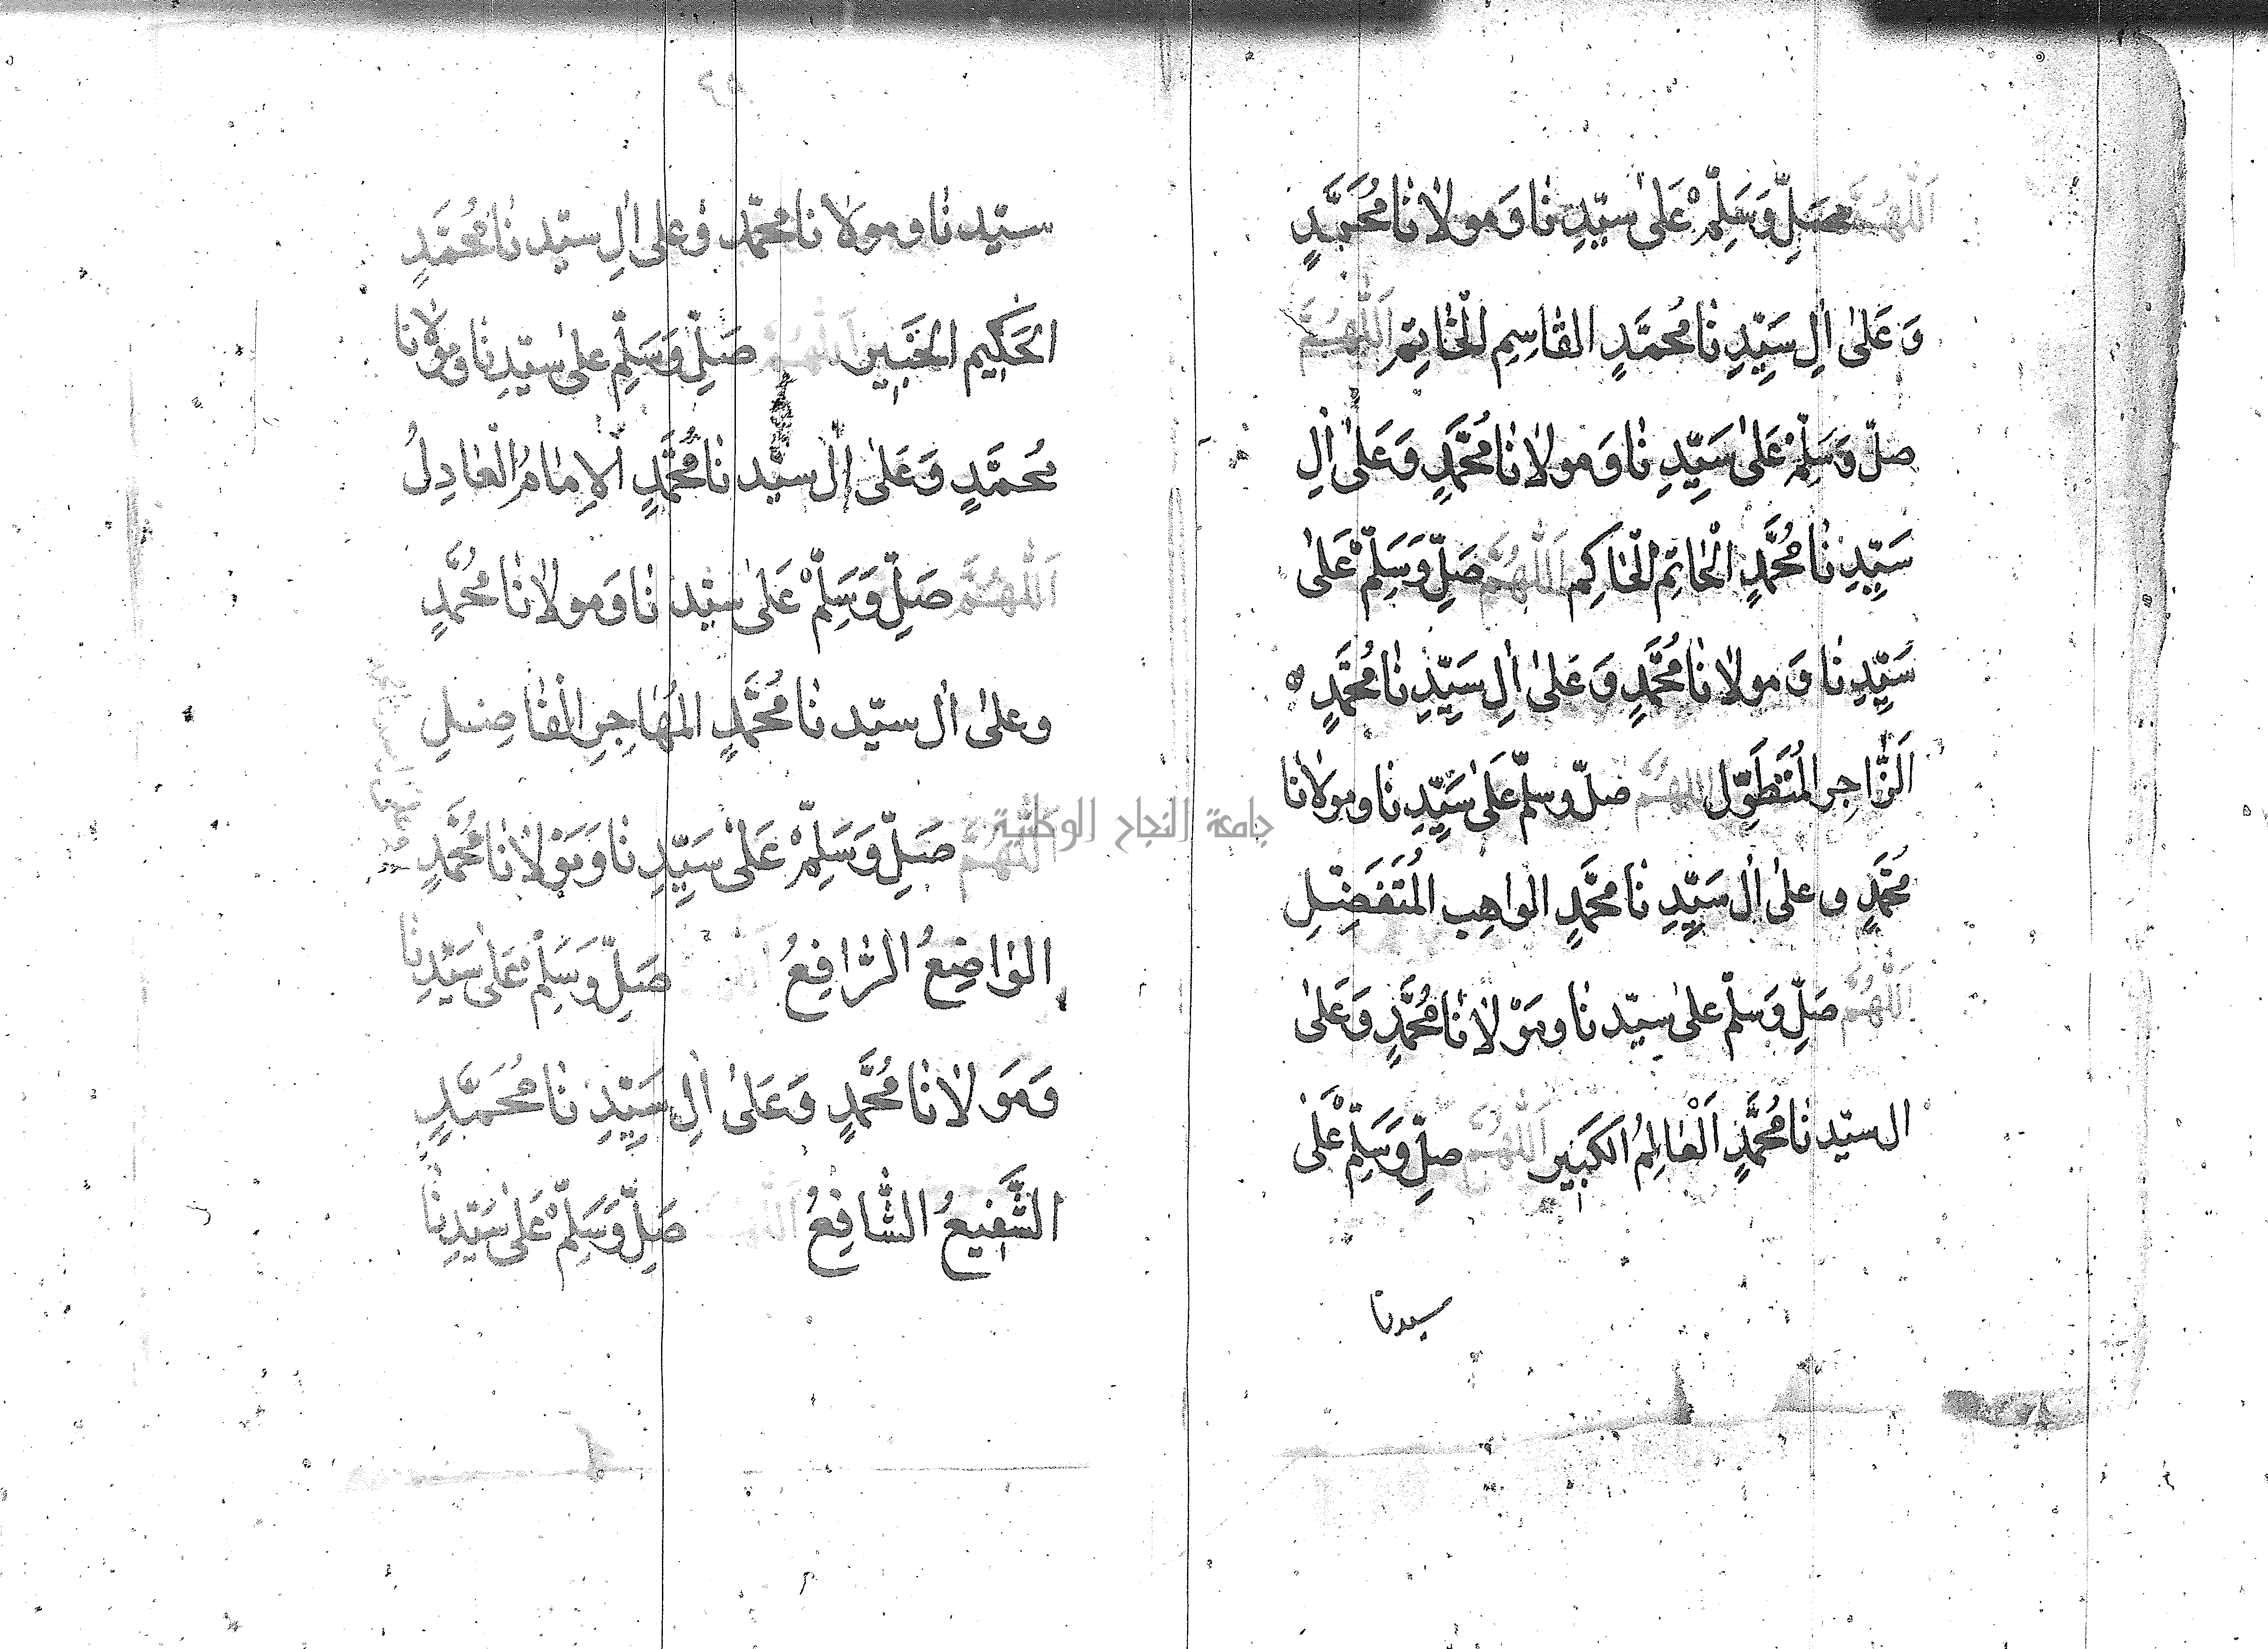 اَللّٰهُمَّ صَلِّ وَسَلِّمْ عَلىٰ سيّدِنٰا وَمولاٰنٰا مُحَمَّدٍ
وَعَلىٰ اٰلِ سَيِّدِنٰا مُحمَّدٍ القٰاسِمِ الْخٰاتِمِ اَللّٰهُمَّ
صلّ وَسَلِّمْ عَلىٰ سَيِّدِنٰا وَمولاٰنٰا مُحَمَّدٍ وَعَلىٰ اٰلِ
سَيِّدِنٰا مُحَمَّدٍ الْخٰاتِمِ الْحٰاكِمِ اَللّٰهُمَّ صَلِّ وَسَلِّمْ عَلىٰ
سَيِّدِنٰا وَمولاٰنٰا مُحَمَّدٍ وَعَلىٰ اٰلِ سَيِّدِنٰا مُحَمَّدٍ
اَلزّٰاجِرِ الْمُتَطَوِّلِ اللهُمَّ صلّ وسلّم عَلىٰ سَيِّدِنٰا ومولاٰنٰا
مُحَمَّدٍ وعلىٰ اٰل سَيِّدِنٰا محَمَّدٍ الواهِب المُتَفَضِّلِ
اَللّٰهُمَّ صَلِّ وَسَلّم علىٰ سيّدنٰا ومَوْلاٰنٰا مُحَمَّدٍ وَعَلىٰ
ال سيّدنٰا مُحَمَّدٍ اَلْعٰالِمُ الكَبِير اَللّٰهُمَّ صلِّ وَسَلِّمْ عَلٰى
سيدنا
سيّدنٰا ومولاٰنٰا محمّد وَعلىٰ اٰلِ سيّدنٰا مُحَمَّدٍ
الحَكِيم الخَبِير اَللّٰهُمَّ صَلِّ وَسَلِّمْ علىٰ سيّدِنٰا ومولاٰنٰا
مُحمَّدٍ وَعَلىٰ اٰل سيّدنٰا مُحَمَّدٍ اَلاِمٰامُ الْعٰادِلُ
اَللّٰهُمَّ صَلِّ وَسَلِّمْ عَلىٰ سيّدنٰا وَمولاٰنٰا مُحَمَّدٍ
وعلىٰ اٰل سيّدنٰا مُحَمَّدٍ المُهٰاجِرِ الْفٰاضِلِ
اَللّٰهُمَّ صَلِّ وَسَلِّمْ عَلىٰ سَيِّدِنٰا وَمَوْلاٰنٰا مُحَمَّدٍ
الوٰاضِعُ الرّٰافِعُ اَللّٰهُمَّ صَلِّ وَسَلِّمْ عَلىٰ سَيِّدِنٰا
وَمَولاٰنٰا مُحَمَّدٍ وَعَلىٰ اٰلِ سَيِّدِنٰا مُحَمَّدٍ
الشَّفِيعُ الشّٰافِعُ اَللّٰهُمَّ صَلِّ وَسَلِّمْ عَلىٰ سَيّدِنٰا
جامعة النجاح الوطنية